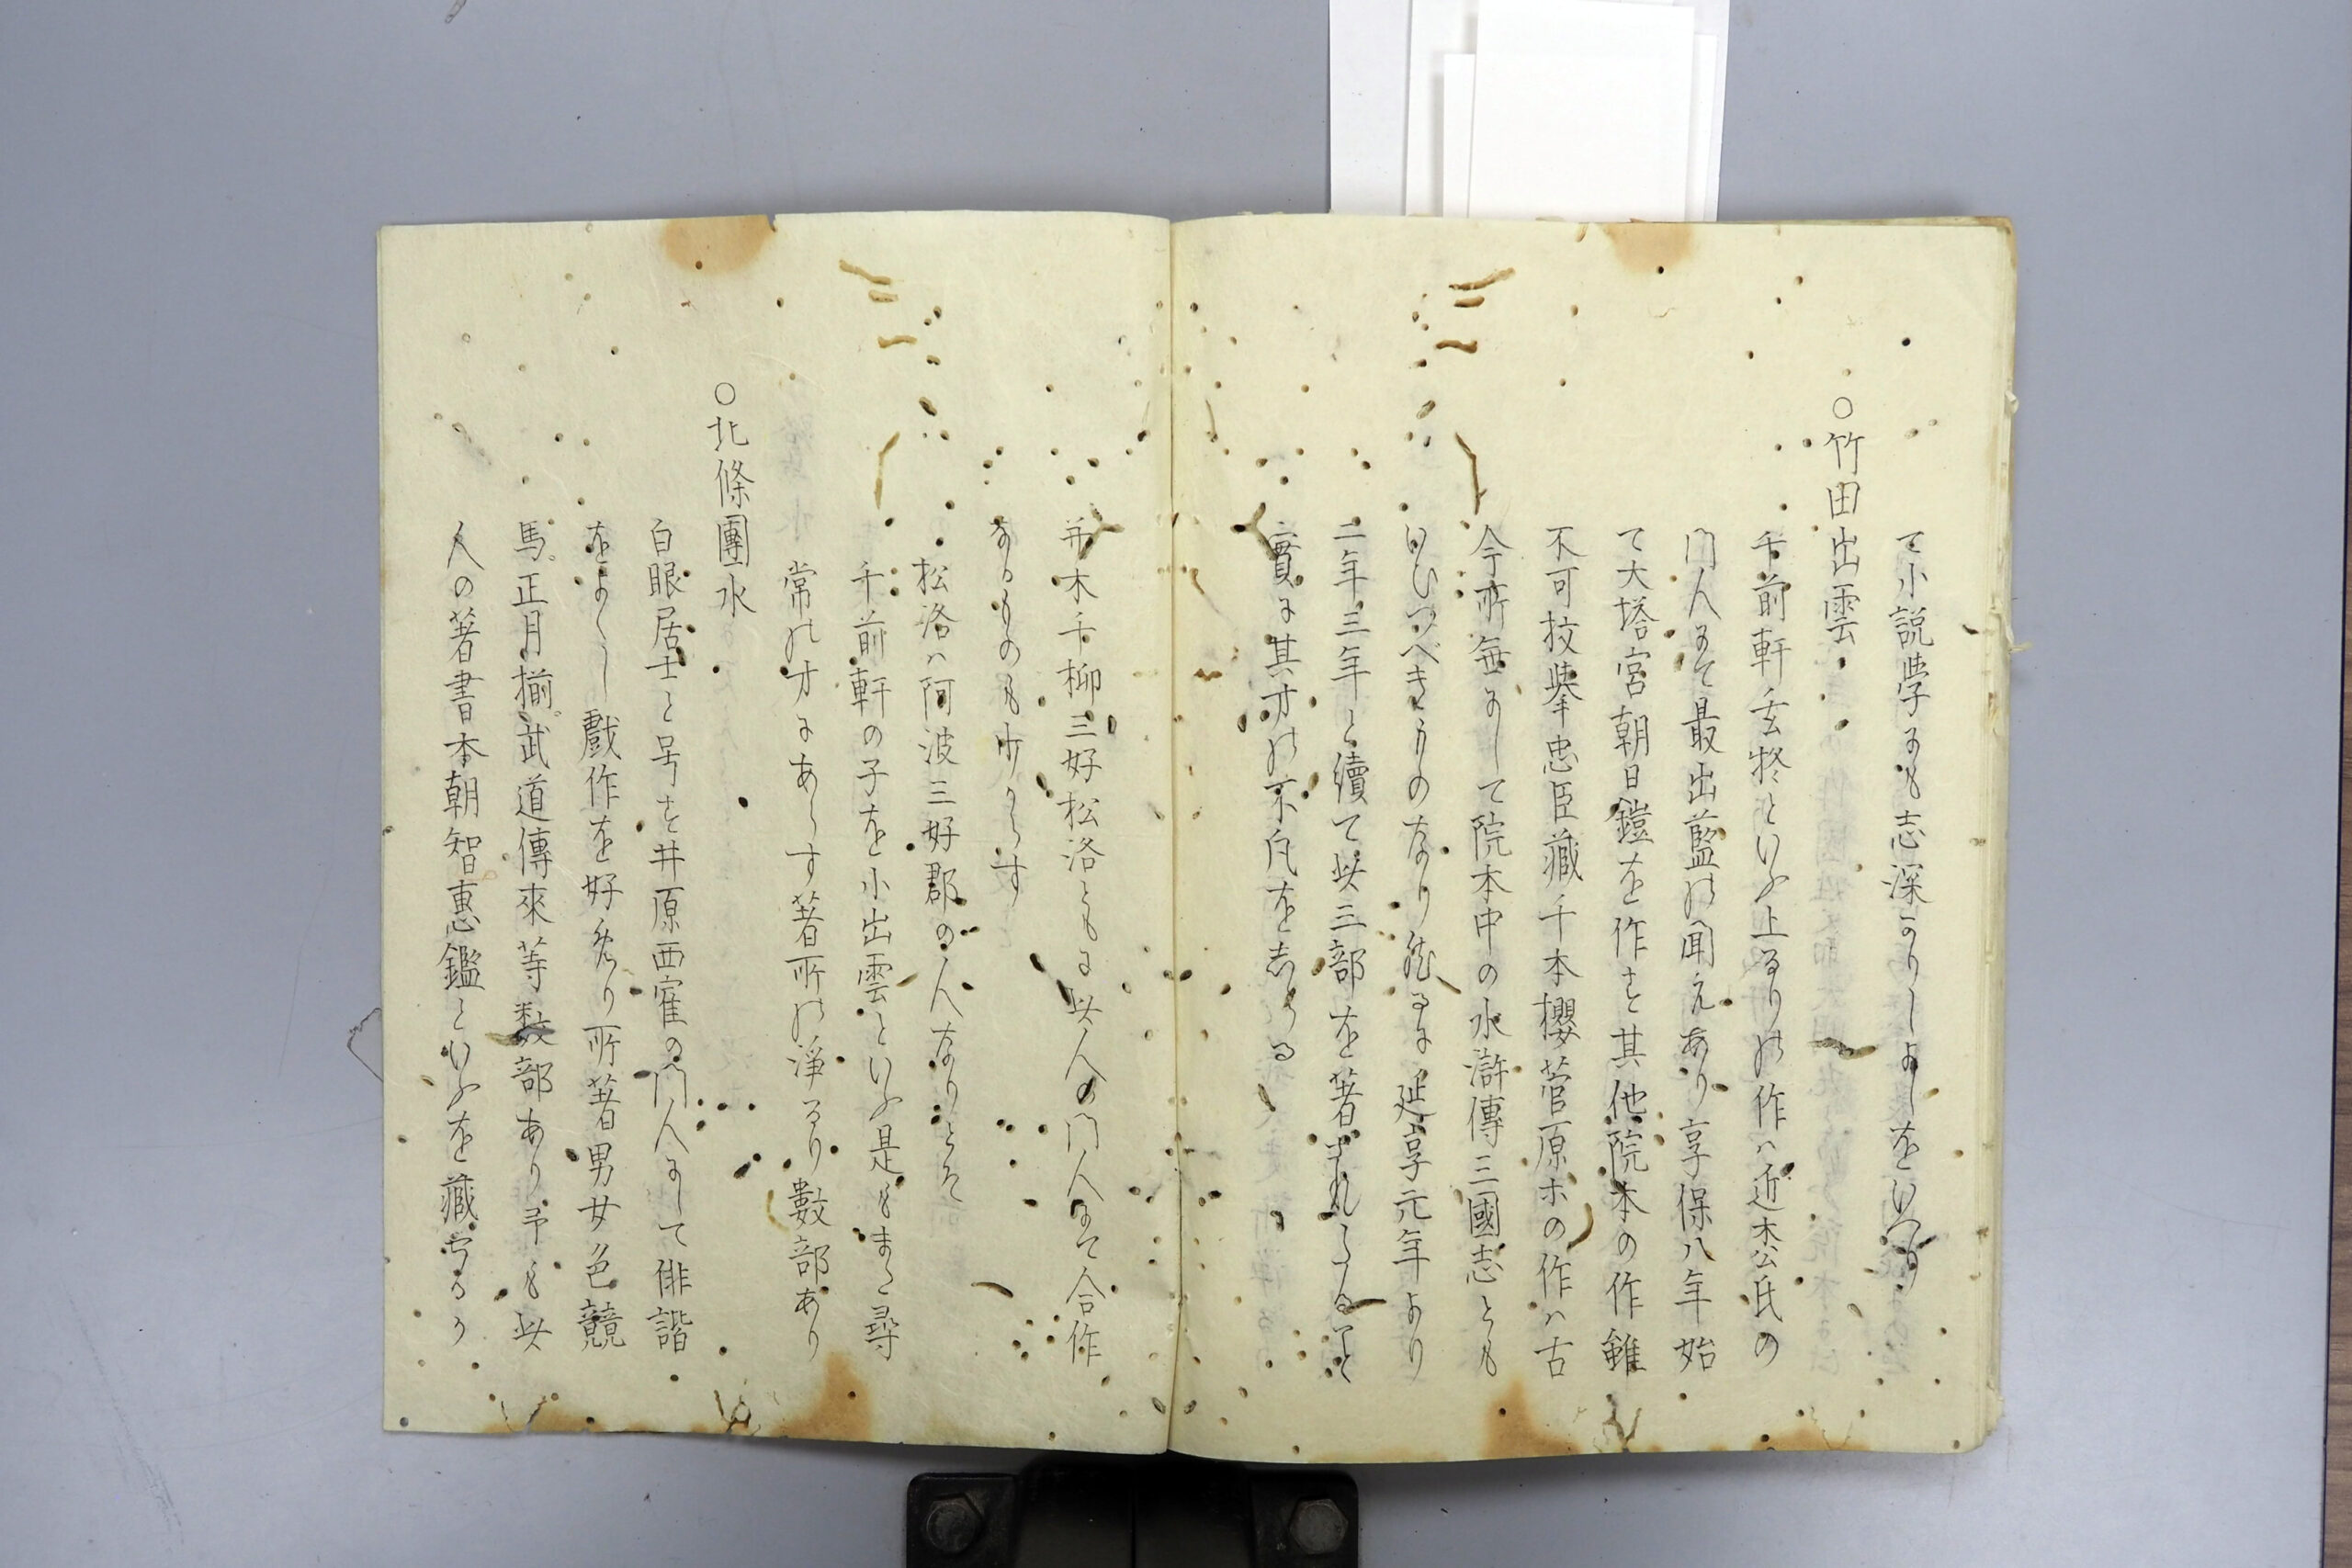 て小説学にも志深かりしよしをいへり
○竹田出雲
千前軒玄柊といふ上るりの作ハ近松氏の
門人にて最出藍の聞えあり享保八年始
て大塔宮朝日鎧を作す其他院本の作雖
不可枚挙忠臣蔵千本櫻菅原ホの作ハ古
今所無にして院本中の水滸傳三國志とも
いひつべきものなり然るに延享元年より
二年三年と續て此三部を著
實に其才の不凡をしる
並木千柳三好松洛ともに此人の門人にて合作
なるもの少からす
松洛ハ阿波三好郡の人なりとそ
千前軒の子を小出雲といふ是もまた尋
常の才にあらす著所の淨るり數部あり
○北條團水
白眼居士と号す井原西隺の門人にして俳諧
をよくし戲作を好めり所著男女色競
馬正月揃武道傳來等数部あり予も此
人の著書本朝智惠鑑といふを藏